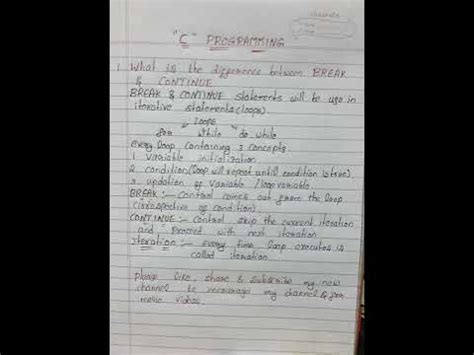 "C" PROGRAMMING
1. What is the difference between BREAK
& CONTINUE
BREAK & CONTINUE statements will be use in
iterative statements(loops).
LOOPS
for while do while
every loop containing 3 concepts.
1 variable initialization
2. condition(loop will repeat until condition is true).
3. updation of variable /loop variable.
BREAK :- Control comes out from the loop
(irrespective of condition).
CONTINUE :- Control skip the current iteration
and proceed with next iteration
iteration :- every time loop executes is
called iteration.
Please like, share & subscribe my new
channel to encourage my channel & for
more videos.